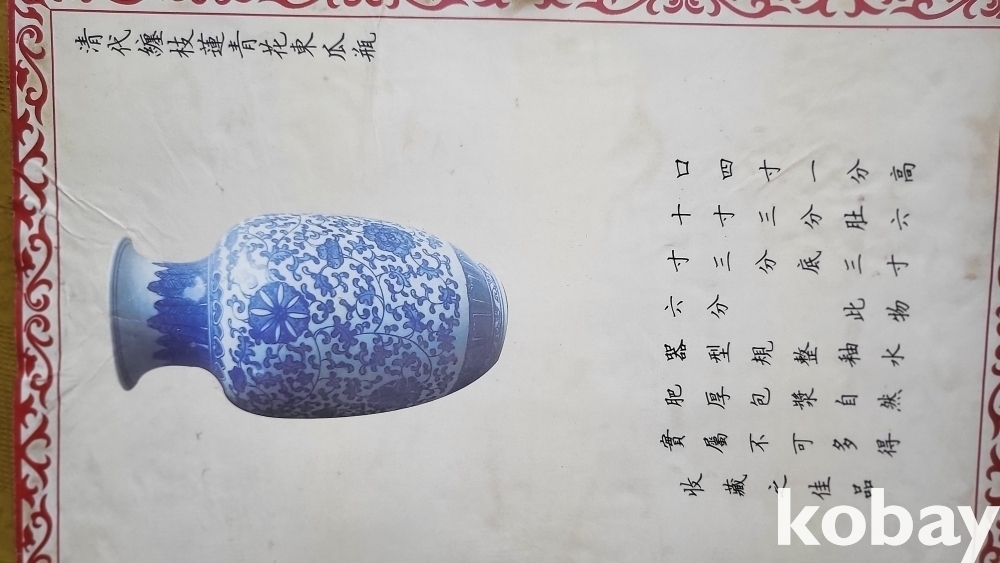 清代纏枝蓮青花東瓜瓶
口四寸一分高
十寸三分肚六
寸三分底三寸
六分 此物
器型規整釉水
肥厚包漿自然
實屬不可多得
收藏之佳品
kobay